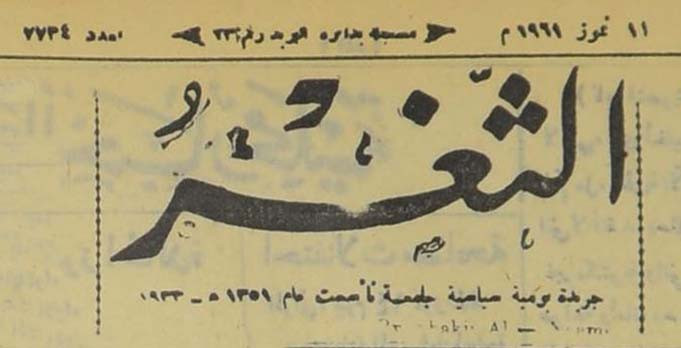 ١١ تموز ١٩٦١ م مسجلة بدائرة البريد رقم ٢٣ العدد ٧٧٣٤
الثَّغْرُ
جريدة يومية سياسية جامعة تأسست عام ١٣٥١ ه - ١٩٣٣